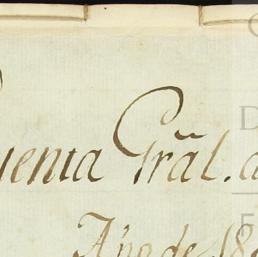 uenta Grãl. d
Año de 18